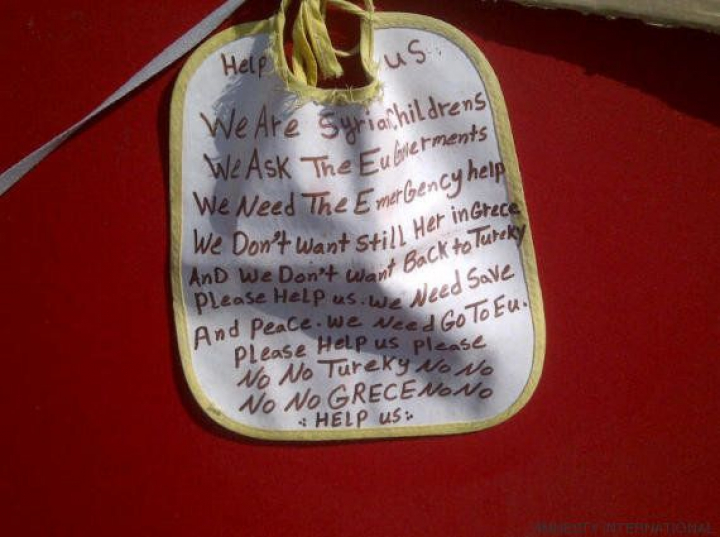 Help us
We Are Syria Childrens
We Ask The Eu Goverments
We Need The EmerGency help
We Don't want still Her in Grece
AnD We Don't want Back to Tureky
Please Help us. we Need Save
And Peace. we Need Go To Eu.
Please Help us please
No No Tureky No No
No No GRECE No No
HELP us
AMNESTY INTERNATIONAL